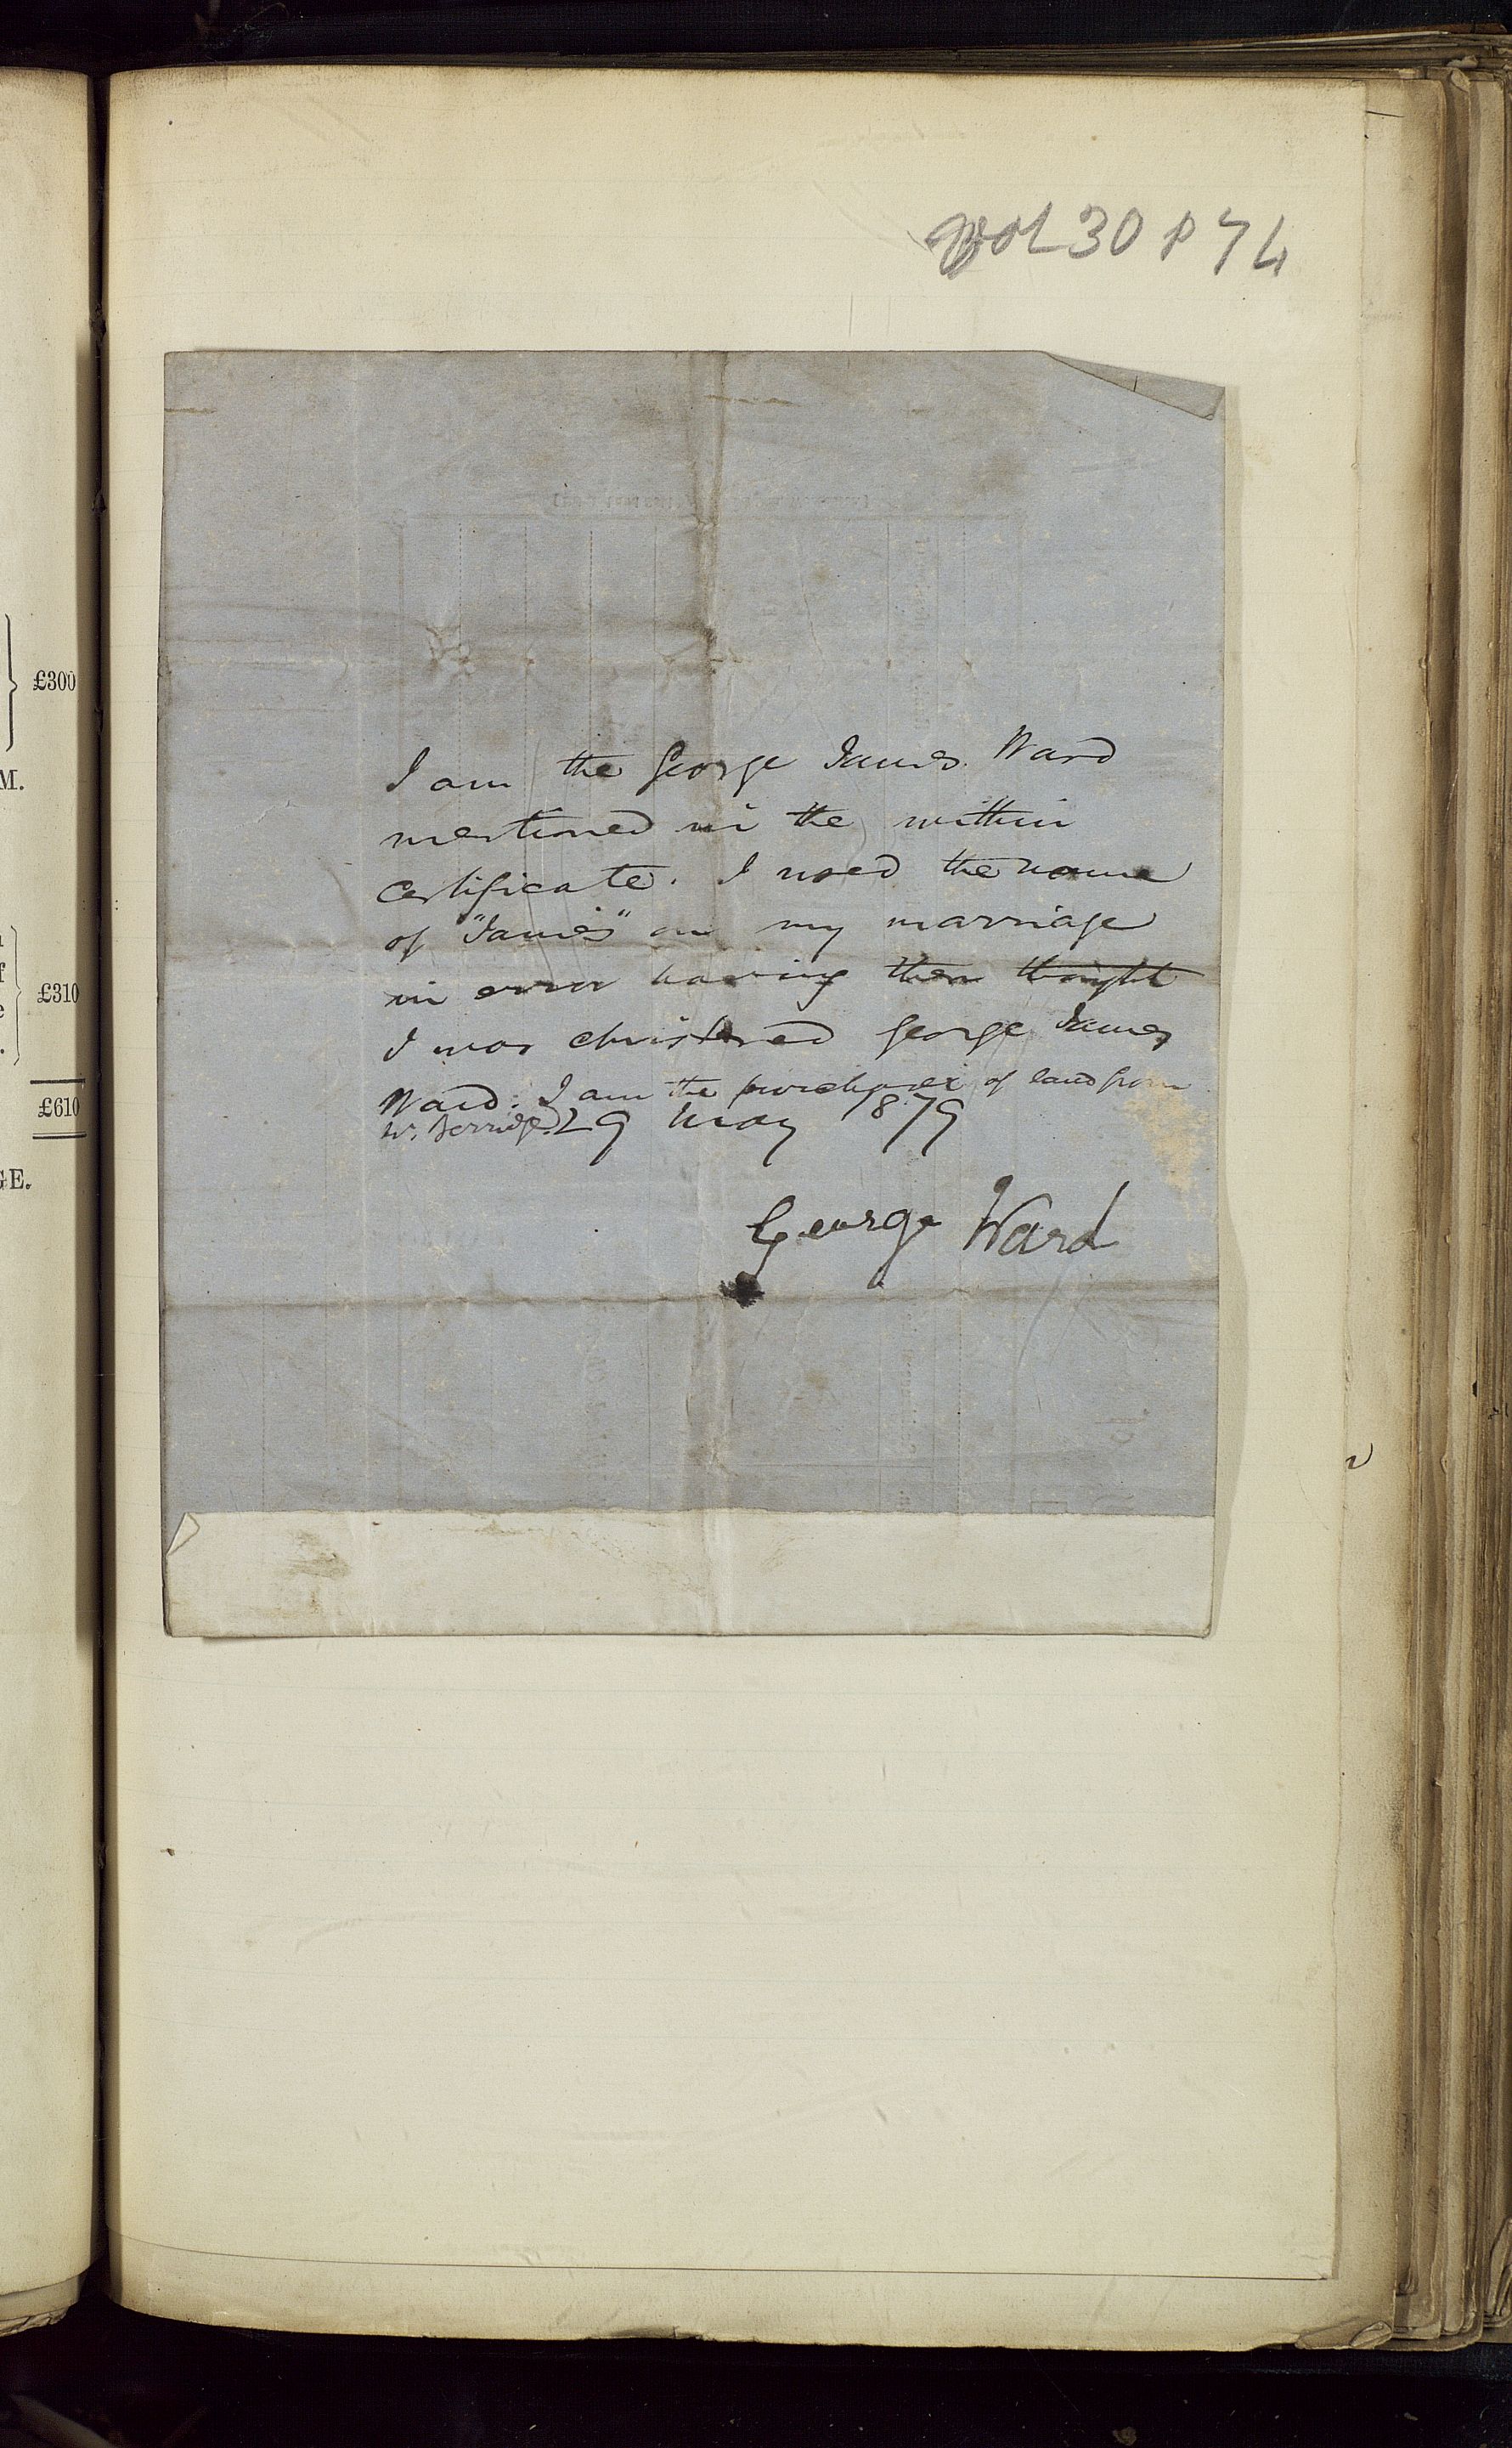 £300
M.
£310
£610
GE.
Vol 30 p 74
I am the George James Ward
mentioned in the within
certificate. I used the name
of "James" on my marriage
in error having then thought
I was christened George James
Ward. I am the purchaser of land from
W. Berridge 29 May 1879
George Ward